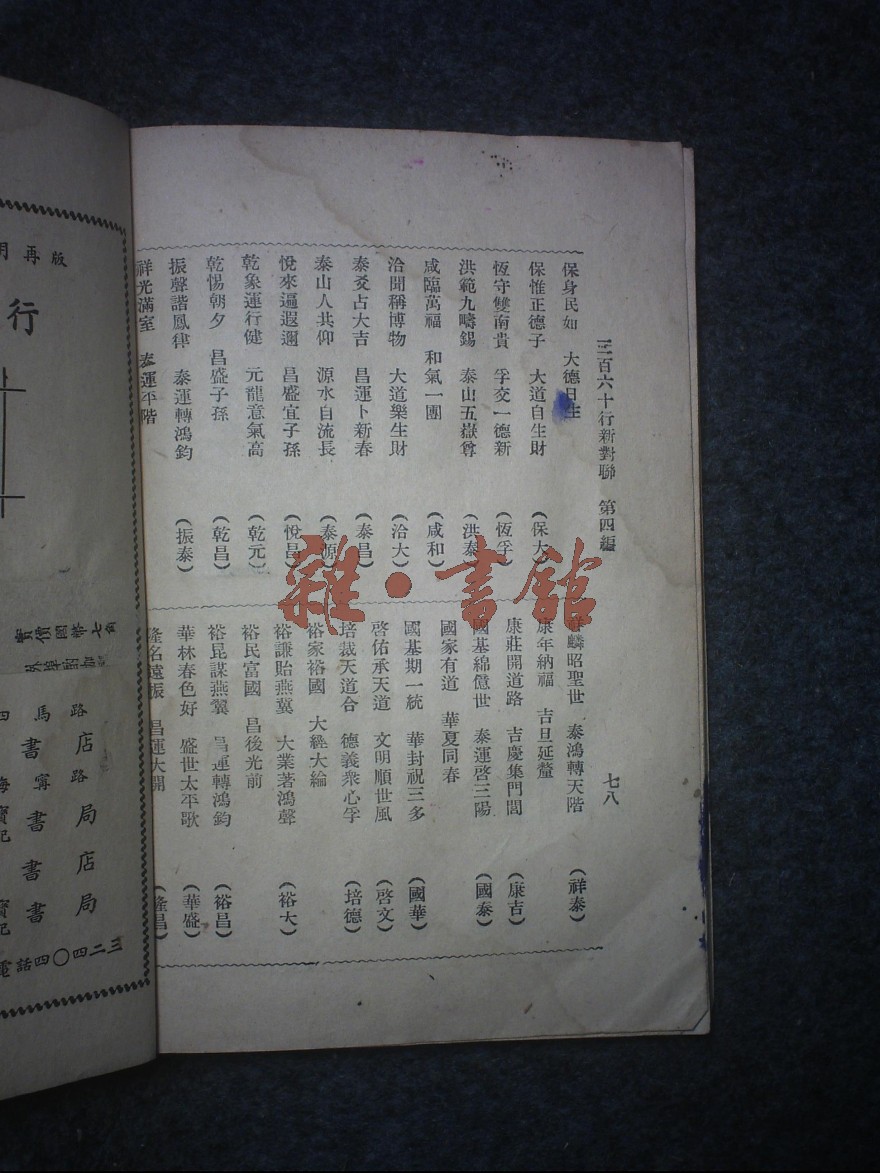 三百六十行新對聯 第四編 七八
保身民如 大德日生
保惟正德子 大道自生財 （保大）
恆守雙南貴 孚交一德新 （恆孚）
洪範九疇錫 泰山五嶽尊 （洪泰）
咸臨萬福 和氣一團 （咸和）
洽聞稱博物 大道樂生財 （洽大）
泰爻占大吉 昌運卜新春 （泰昌）
泰山人共仰 源水自流長 （泰源）
悅來逼遐邇 昌盛宜子孫 （悅昌）
乾象運行健 元龍意氣高 （乾元）
乾惕朝夕 昌盛子孫 （乾昌）
振聲諧鳳律 泰運轉鴻鈞 （振泰）
祥光滿室 泰運平階
麟昭聖世 泰鴻轉天階 （祥泰）
康年納福 吉旦延釐
康莊開道路 吉慶集門閭 （康吉）
國基綿億世 泰運啓三陽 （國泰）
國家有道 華夏同春
國基期一統 華封祝三多 （國華）
啓佑承天道 文明順世風 （啓文）
培裁天道合 德義衆心孚 （培德）
裕家裕國 大經大綸
裕謙貽燕冀 大業著鴻聲 （裕大）
裕民富國 昌後光前
裕昆謀燕翼 昌運轉鴻鈞 （裕昌）
華林春色好 盛世太平歌 （華盛）
隆名遠振 昌運大開 （隆昌）
雜·書館
月再版
行
實價國幣七
四馬路
書店
寧路
書局
書店
書局
電話四〇四二三